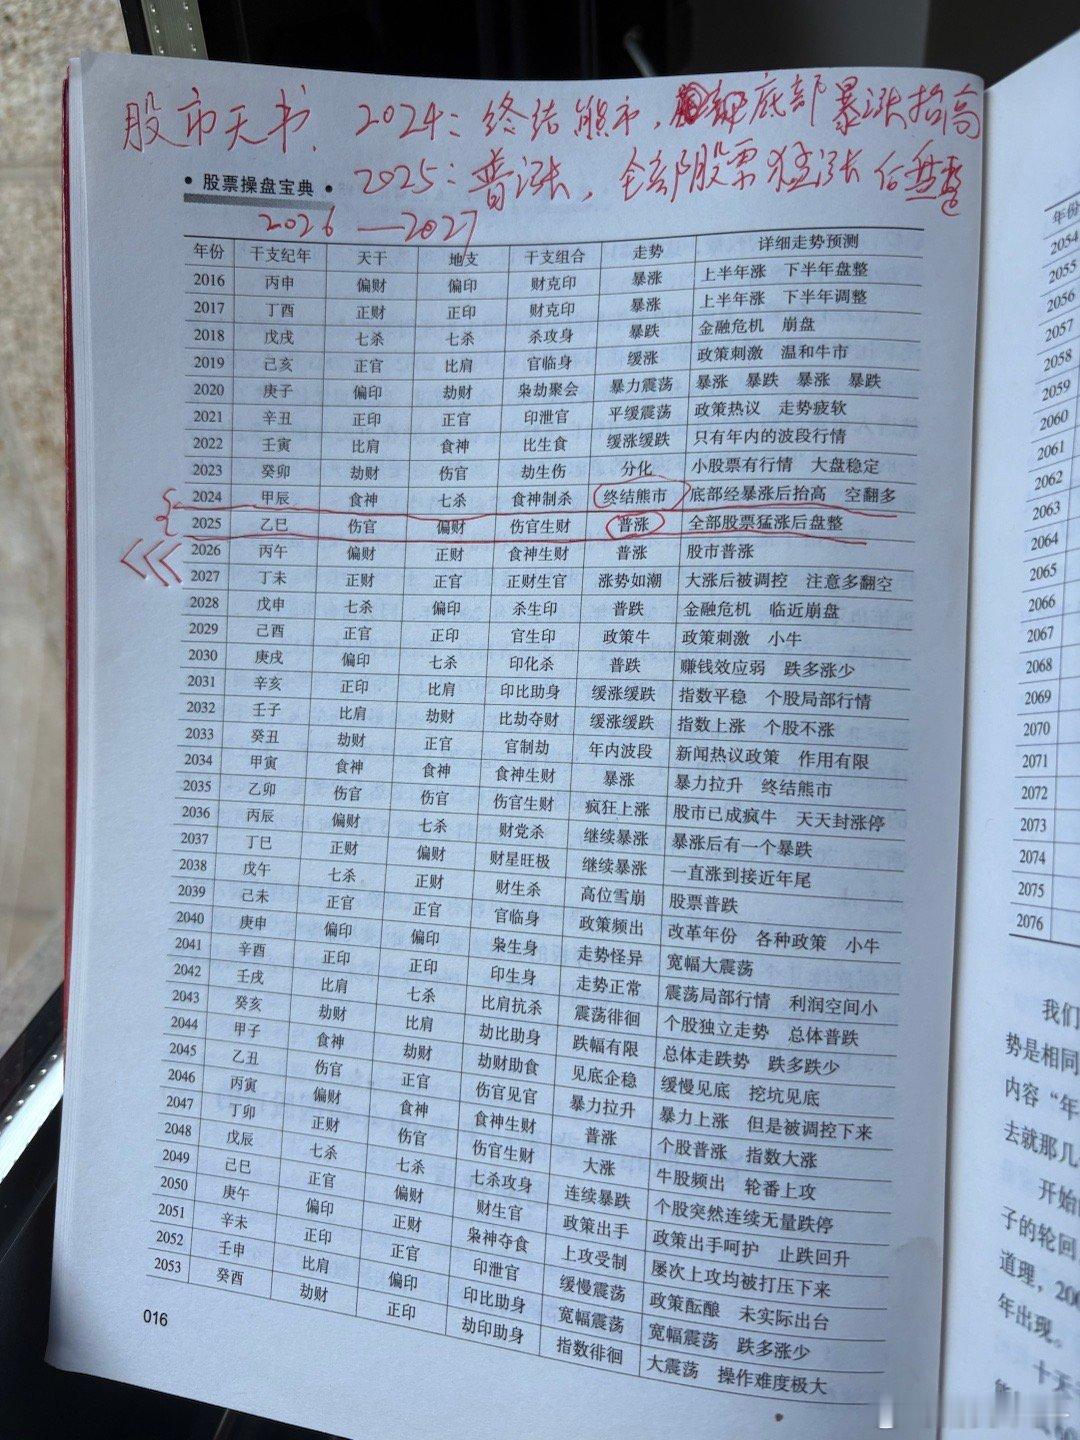 股市天书. 2024：终结熊市，底部暴涨抬高
2025：普涨，全部股票猛涨后盘整
• 股票操盘宝典 •
2026—2027
年份 干支纪年 天干 地支 干支组合 走势 详细走势预测
2016 丙申 偏财 偏印 财克印 暴涨 上半年涨 下半年盘整
2017 丁酉 正财 正印 财克印 暴涨 上半年涨 下半年调整
2018 戊戌 七杀 七杀 杀攻身 暴跌 金融危机 崩盘
2019 己亥 正官 比肩 官临身 缓涨 政策刺激 温和牛市
2020 庚子 偏印 劫财 枭劫聚会 暴力震荡 暴涨 暴跌 暴涨 暴跌
2021 辛丑 正印 正官 印泄官 平缓震荡 政策热议 走势疲软
2022 壬寅 比肩 食神 比生食 缓涨缓跌 只有年内的波段行情
2023 癸卯 劫财 伤官 劫生伤 分化 小股票有行情 大盘稳定
2024 甲辰 食神 七杀 食神制杀 终结熊市 底部经暴涨后抬高 空翻多
2025 乙巳 伤官 偏财 伤官生财 普涨 全部股票猛涨后盘整
2026 丙午 偏财 正财 食神生财 普涨 股市普涨
2027 丁未 正财 正官 正财生官 涨势如潮 大涨后被调控 注意多翻空
2028 戊申 七杀 偏印 杀生印 普跌 金融危机 临近崩盘
2029 己酉 正官 正印 官生印 政策牛 政策刺激 小牛
2030 庚戌 偏印 七杀 印化杀 普跌 赚钱效应弱 跌多涨少
2031 辛亥 正印 比肩 印比助身 缓涨缓跌 指数平稳 个股局部行情
2032 壬子 比肩 劫财 比劫夺财 缓涨缓跌 指数上涨 个股不涨
2033 癸丑 劫财 正官 官制劫 年内波段 新闻热议政策 作用有限
2034 甲寅 食神 食神 食神生财 暴涨 暴力拉升 终结熊市
2035 乙卯 伤官 伤官 伤官生财 疯狂上涨 股市已成疯牛 天天封涨停
2036 丙辰 偏财 七杀 财党杀 继续暴涨 暴涨后有一个暴跌
2037 丁巳 正财 偏财 财星旺极 继续暴涨 一直涨到接近年尾
2038 戊午 七杀 正财 财生杀 高位雪崩 股票普跌
2039 己未 正官 正官 官临身 政策频出 改革年份 各种政策 小牛
2040 庚申 偏印 偏印 枭生身 走势怪异 宽幅大震荡
2041 辛酉 正印 正印 印生身 走势正常 震荡局部行情 利润空间小
2042 壬戌 比肩 七杀 比肩抗杀 震荡徘徊 个股独立走势 总体普跌
2043 癸亥 劫财 比肩 劫比助身 跌幅有限 总体走跌势 跌多跌少
2044 甲子 食神 劫财 劫财助食 见底企稳 缓慢见底 挖坑见底
2045 乙丑 伤官 正官 伤官见官 暴力拉升 暴力上涨 但是被调控下来
2046 丙寅 偏财 食神 食神生财 普涨 个股普涨 指数大涨
2047 丁卯 正财 伤官 伤官生财 大涨 牛股频出 轮番上攻
2048 戊辰 七杀 七杀 七杀攻身 连续暴跌 个股突然连续无量跌停
2049 己巳 正官 偏财 财生官 政策出手 政策出手呵护 止跌回升
2050 庚午 偏印 正财 枭神夺食 上攻受制 屡次上攻均被打压下来
2051 辛未 正印 正官 印泄官 缓慢震荡 政策酝酿 未实际出台
2052 壬申 比肩 偏印 印比助身 宽幅震荡 宽幅震荡 跌多涨少
2053 癸酉 劫财 正印 劫印助身 指数徘徊 大震荡 操作难度极大
016
年份
2054
2055
2056
2057
2058
2059
2060
2061
2062
2063
2064
2065
2066
2067
2068
2069
2070
2071
2072
2073
2074
2075
2076
我们
势是相同
内容“年
去就那几
开始
子的轮回
道理，200
年出现。
十天